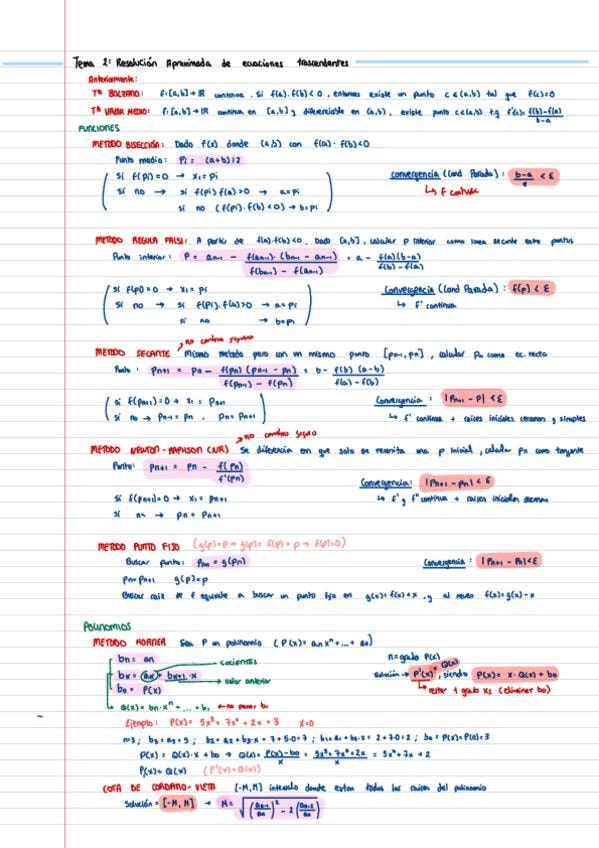 Tema 2: Resolución Aproximada de ecuaciones trascendentes
Anteriormente:
Tª BOLZANO: f:[a,b]→ℝ continua. Si f(a).f(b)<0, entonces existe un punto c∈(a,b) tal que f(c)=0
Tª VALOR MEDIO: f:[a,b]→ℝ continua en [a,b] y diferenciable en (a,b), existe punto c∈(a,b) t.q f'(c)= f(b)-f(a) / b-a
FUNCIONES
METODO BISECCIÓN: Dado f(x) donde (a,b) con f(a).f(b)<0
Punto medio: Pi = (a+b)/2
Si f(pi)=0 → x1=pi
convergencia (Cond Parada): b-a / < ε
si no → si f(pi).f(a)>0 → a=pi
↳ f continua
si no (f(pi).f(b)<0) → b=pi
METODO REGULA FALSI: A partir de f(a).f(b)<0. Dado [a,b], calcular p interior como linea secante entre puntos
Punto interior: P = an-1 - f(an-1).(bn-1 - an-1) / f(bn-1) - f(an-1) = a - f(a)(b-a) / f(b)-f(a)
si f(pi)=0 → x1=pi
Convergencia (Cond Parada): f(p)<ε
si no → si f(pi).f(a)>0 → a=pi
↳ f' continua
si no → b=pi
no cambia signo
METODO SECANTE Mismo metodo pero con un mismo punto [pn-1,pn], calcular pn como ec. recta
Punto: pn+1 = pn - f(pn)(pn-1 - pn) / f(pn-1) - f(pn) = b - f(b)(a-b) / f(a)-f(b)
si f(pn+1)=0 → x1=pn+1
Convergencia: |Pn+1 - P|<ε
si no → Pn-1=pn. Pn=Pn+1
↳ f' continua + raices iniciales cercanas y simples
no cambia signo
METODO NEWTON-RAPHSON (N/R) Se diferencia en que solo se necesita una p inicial, calcular pn como tangente
Punto: pn+1 = pn - f(pn) / f'(pn)
Convergencia: |Pn+1 - pn|<ε
si f(pn+1)=0 → x1=pn+1
↳ f' y f'' continua + raices iniciales cercanas
si no → pn=Pn+1
METODO PUNTO FIJO (g(p)=p → g(p)=f(p)+p → f(p)=0)
Buscar punto: pn+1 = g(pn)
Convergencia: |Pn+1 - Pn|<ε
pn=pn+1 g(p)=p
Buscar raiz de f equivale a buscar un punto fijo en g(x)=f(x)+x, y al reves f(x)=g(x)-x
POLINOMIOS
METODO HORNER Sea P un polinomio (P(x)=an x^n+...+a0)
bn = an
cocientes
n=grado P(x)
bk = ak + bk+1.x
valor anterior
Solución → P'(x) = Q(x), siendo P(x)=x.Q(x)+b0
b0 = P(x)
↳ restar 1 grado xs (eliminar b0)
Q(x)=bn.x^n+...+b1 ← no poner b0
Ejemplo: P(x)= 5x³+7x²+2x+3 x=0
n=3; b3=a3=5; b2=a2+b3.x=7+5.0=7; b1=a1+b2.x=2+7.0=2; b0=P(x)=P(0)=3
P(x)=Q(x).x+b0 → Q(x)= P(x)-b0 / x = 5x³+7x²+2x / x = 5x²+7x+2
P(x)=Q(x) (P'(x)=Q(x))
COTA DE CARDANO-VIETA [-M,M] intervalo donde estan todas las raices del polinomio
Solución = [-M,M] → M= √((an-1 / an)² - 2(an-2 / an))